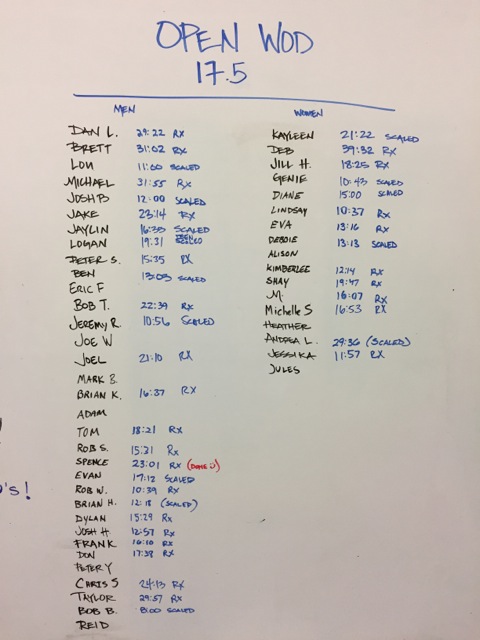 OPEN WOD
17.5
MEN
DAN L. 29:22 RX
BRETT 31:02 RX
LOU 11:00 SCALED
MICHAEL 31:55 RX
JOSH B 12:00 SCALED
JAKE 23:14 RX
JAYLIN 16:38 SCALED
LOGAN 19:31
PETER S. 15:35 RX
BEN 13:03 SCALED
ERIC F
BOB T. 22:39 RX
JEREMY R. 10:56 SCALED
JOE W
JOEL 21:10 RX
MARK B.
BRIAN K. 16:37 RX
ADAM
TOM 18:21 RX
ROB S. 15:21 RX
SPENCE 23:01 RX (DONE :)
EVAN 17:12 SCALED
ROB W. 10:39 RX
BRIAN H. 12:18 (SCALED)
DYLAN 15:29 RX
JOSH H 12:57 RX
FRANK 16:10 RX
DON 17:38 RX
PETER Y
CHRIS S 24:13 RX
TAYLOR 29:57 RX
BOB B. 8:00 SCALED
REID
WOMEN
KAYLEEN 21:22 SCALED
DEB 39:32 RX
JILL H. 18:25 RX
GENIE 10:43 SCALED
DIANE 15:00 SCALED
LINDSAY 10:37 RX
EVA 13:16 RX
DEBBIE 13:13 SCALED
ALISON
KIMBERLEE 12:14 RX
SHAY 19:47 RX
M. 16:07 RX
Michelle S 16:53 RX
HEATHER
ANDREA L. 29:36 (SCALED)
JESSIKA 11:57 RX
JULES
O's!